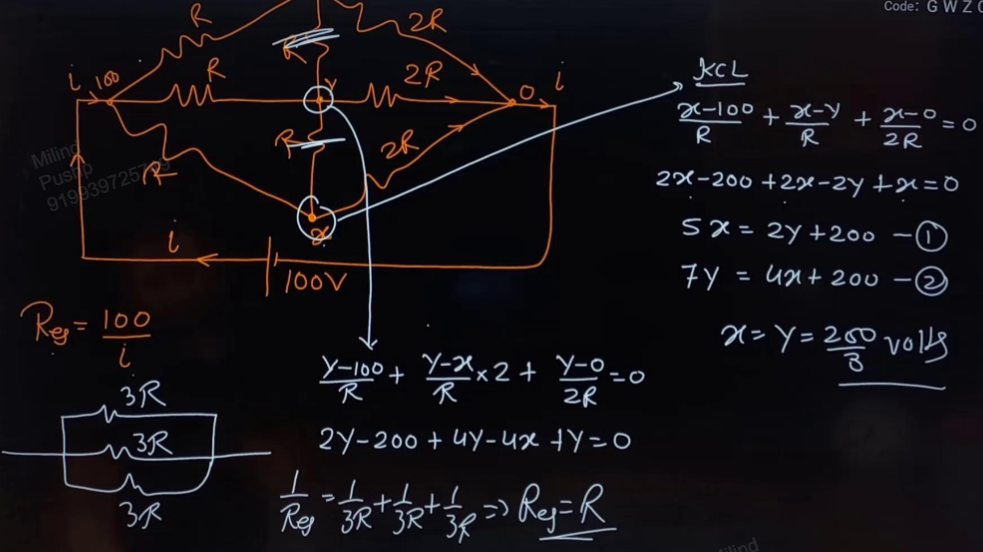 Code: G W Z
R
2R
R
i
100
R
y
2R
0
i
R
2R
R
x
i
100V
Milind
Pushp
KCL
x-100/R + x-y/R + x-0/2R = 0
2x-200+2x-2y+x=0
5x = 2y+200 - ①
7y = 4x+200 - ②
x = y = 200/3 volts
Req = 100/i
3R
3R
3R
y-100/R + y-x/R ×2 + y-0/2R =0
2y-200+4y-4x+y=0
1/Req = 1/3R + 1/3R + 1/3R => Req = R
Milind